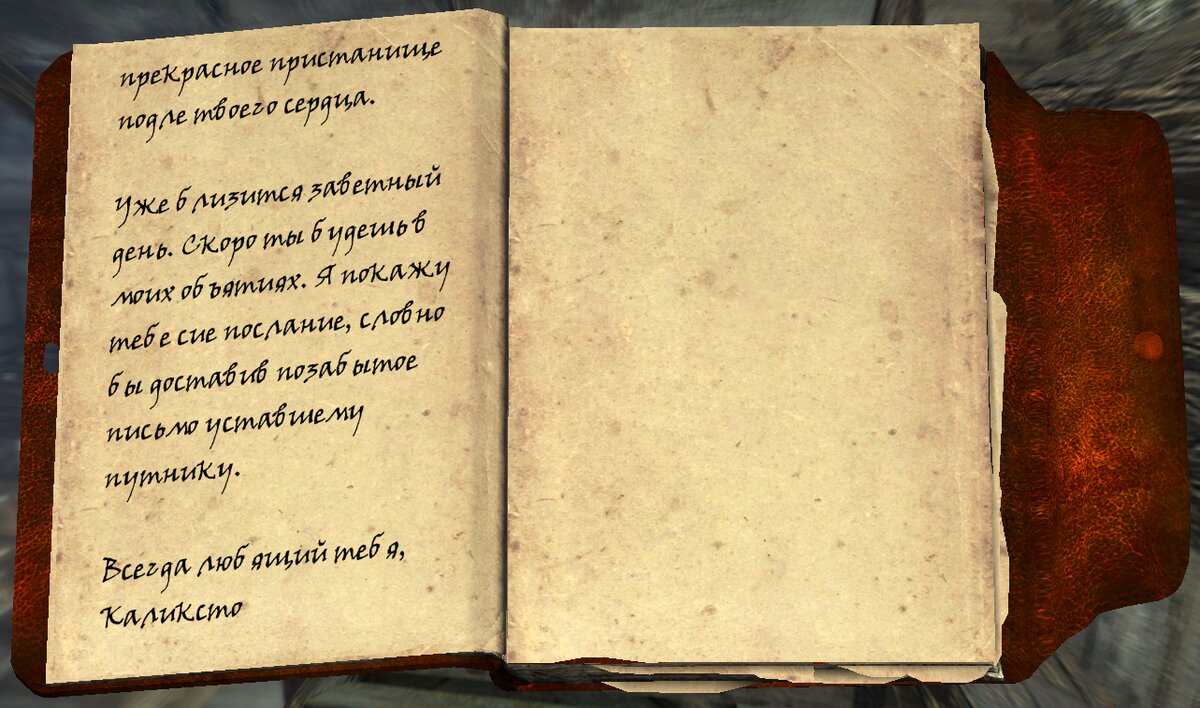 прекрасное пристанище
подле твоего сердца.
Уже близится заветный
день. Скоро ты будешь в
моих объятиях. Я покажу
тебе сие послание, словно
бы доставив позабытое
письмо уставшему
путнику.
Всегда любящий тебя,
Каликсто